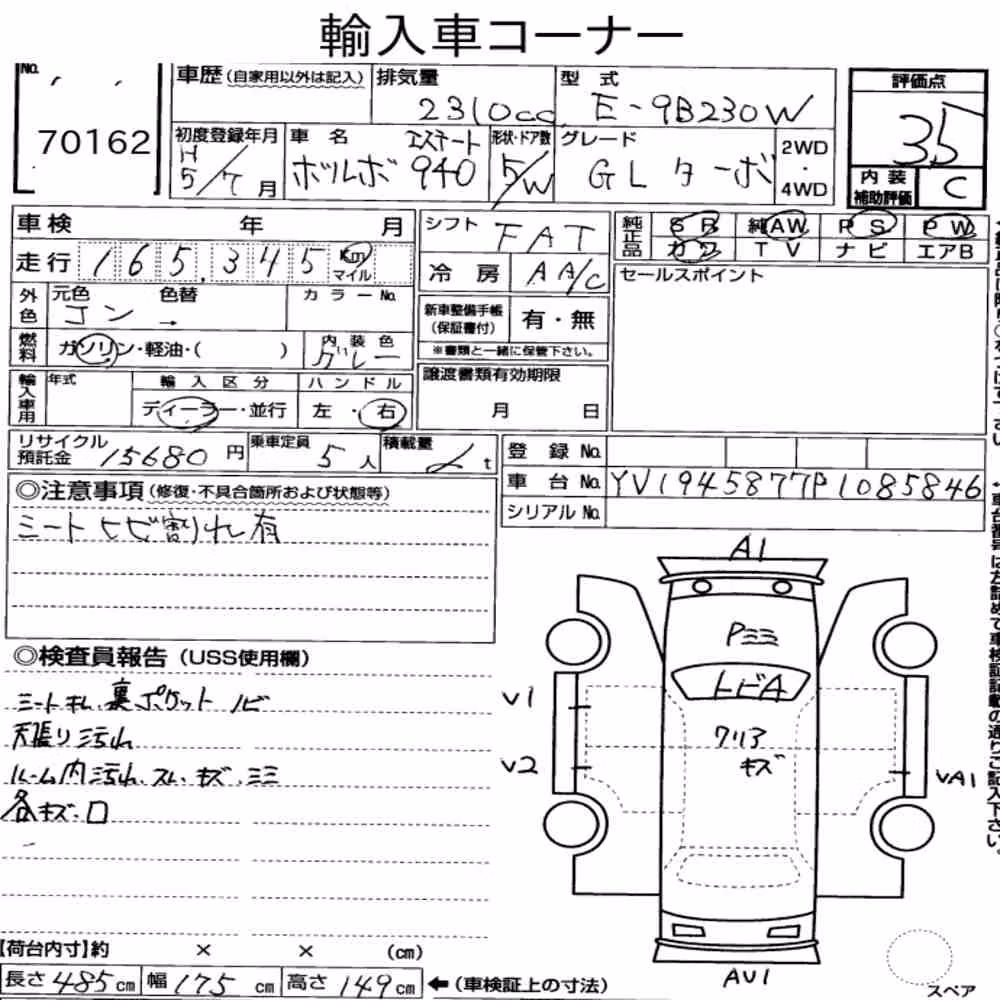 輸入車コーナー
No. 70162
車歴 (自家用以外は記入)
排気量 2310cc
型式 E-9B230W
評価点 3.5
内装補助評価 C
初度登録年月 H5/7月
車名 ボルボ 940 エステート
形状・ドア数 5/W
グレード GL ターボ
2WD・4WD
車検 年 月
走行 165,345 Km マイル
シフト FAT
冷房 AA/C
純正品 SR 純AW PS PW
カワ TV ナビ エアB
セールスポイント
外色 元色 コン 色替 → カラーNo.
新車整備手帳(保証書付) 有・無
※書類と一緒に保管下さい。
燃料 ガソリン・軽油・( )
内装色 グレー
譲渡書類有効期限
月 日
輸入車用 年式
輸入区分 ディーラー・並行
ハンドル 左・右
リサイクル預託金 15680円
乗車定員 5人
積載量 t
登録No.
車台No. YV1945877P1085846
シリアルNo.
◎注意事項 (修復・不具合箇所および状態等)
シートヒビ割れ有
◎検査員報告 (USS使用欄)
シートキレ、裏ポケットノビ
天張り汚れ
ルーム内汚れ、スレ、キズ、シミ
各キズ・凹
A1
Pシミ
トビA
V1
クリア
キズ
V2
VA1
AV1
スペア
【荷台内寸】約 × × (cm)
長さ 485cm 幅 175cm 高さ 149cm ←(車検証上の寸法)
車台番号は左詰めで車検証記載の通りご記入下さい。